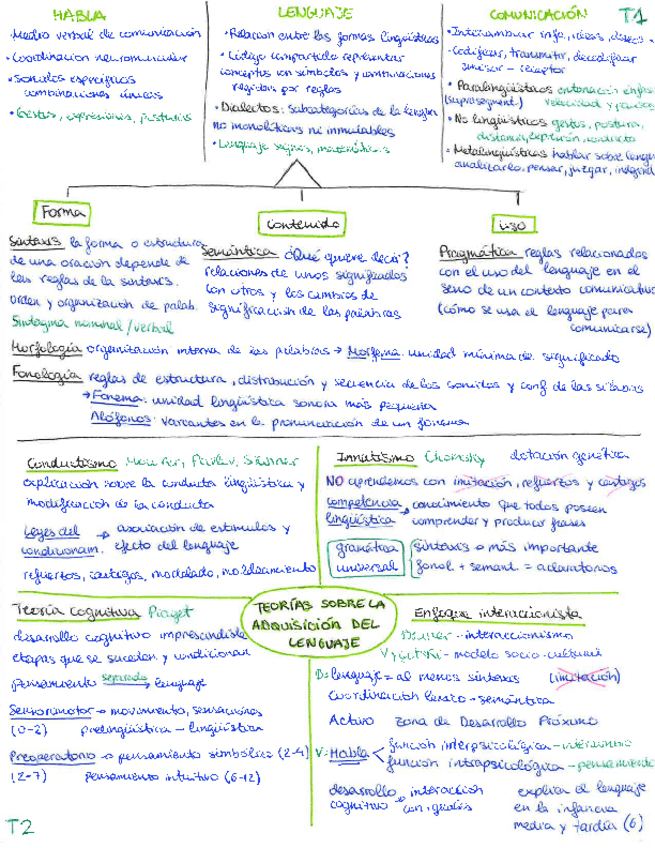 HABLA
·Medio verbal de comunicación
·Coordinación neuromuscular
·sonidos específicos
combinaciones únicas
·Gestos, expresiones, posturas
LENGUAJE
·Relación entre las formas lingüísticas
·Código compartido representar
conceptos con símbolos y combinaciones
regidas por reglas
·Dialectos: subcategorías de la lengua
no monolíticas ni inmutables
·Lenguaje signos, matemáticas
COMUNICACIÓN T1
·Intercambiar info, ideas, deseos
·Codificar, transmitir, decodificar
emisor - receptor
·Paralingüísticos entonación énfasis
(suprasegment.) velocidad y pausas
·No lingüísticos gestos, postura,
distancia, expresión, contacto
·Metalingüísticos hablar sobre lenguaje
analizarlo, pensar, juzgar,
Forma
Contenido
uso
Sintaxis la forma o estructura
de una oración depende de
las reglas de la sintaxis.
orden y organización de palab.
Sintagma nominal/verbal
Semántica ¿Qué quiere decir?
relaciones de unos significados
con otros y los cambios de
significación de las palabras
Pragmática reglas relacionadas
con el uso del lenguaje en el
seno de un contexto comunicativo
(cómo se usa el lenguaje para
comunicarse)
Morfología organización interna de las palabras → Morfema: unidad mínima de significado
Fonología reglas de estructura, distribución y secuencia de los sonidos y conf de las sílabas
→ Fonema: unidad lingüística sonora más pequeña
Alófonos: variantes en la pronunciación de un fonema
Conductismo Mowrer, Pavlov, Skinner
explicación sobre la conducta lingüística y
modificación de la conducta
Leyes del → asociación de estímulos y
condicionam. efecto del lenguaje
refuerzos, castigos, modelado, moldeamiento
Innatismo Chomsky dotación genética
NO aprendemos con imitación, refuerzos y castigos
competencia → conocimiento que todos poseen
lingüística comprender y producir frases
gramática
universal
sintaxis → más importante
fonol + semant. = aclaratorios
TEORÍAS SOBRE LA
ADQUISICIÓN DEL
LENGUAJE
Teoría cognitiva Piaget
desarrollo cognitivo imprescindible
etapas que se suceden y condicionan
pensamiento separado → lenguaje
Sensoriomotor → movimiento, sensaciones
(0-2) prelingüística - lingüística
Preoperatorio → pensamiento simbólico (2-4)
(2-7) pensamiento intuitivo (6-12)
T2
Enfoque interaccionista
Bruner - interaccionismo
Vygotski - modelo socio-cultural
B: lenguaje = al menos sintaxis (imitación)
Coordinación léxico-semántica
Activo Zona de Desarrollo Próximo
V: Habla < función interpsicológica - intercambio
función intrapsicológica - pensamiento
desarrollo → interacción
cognitivo con iguales
explicar el lenguaje
en la infancia
media y tardía (6)